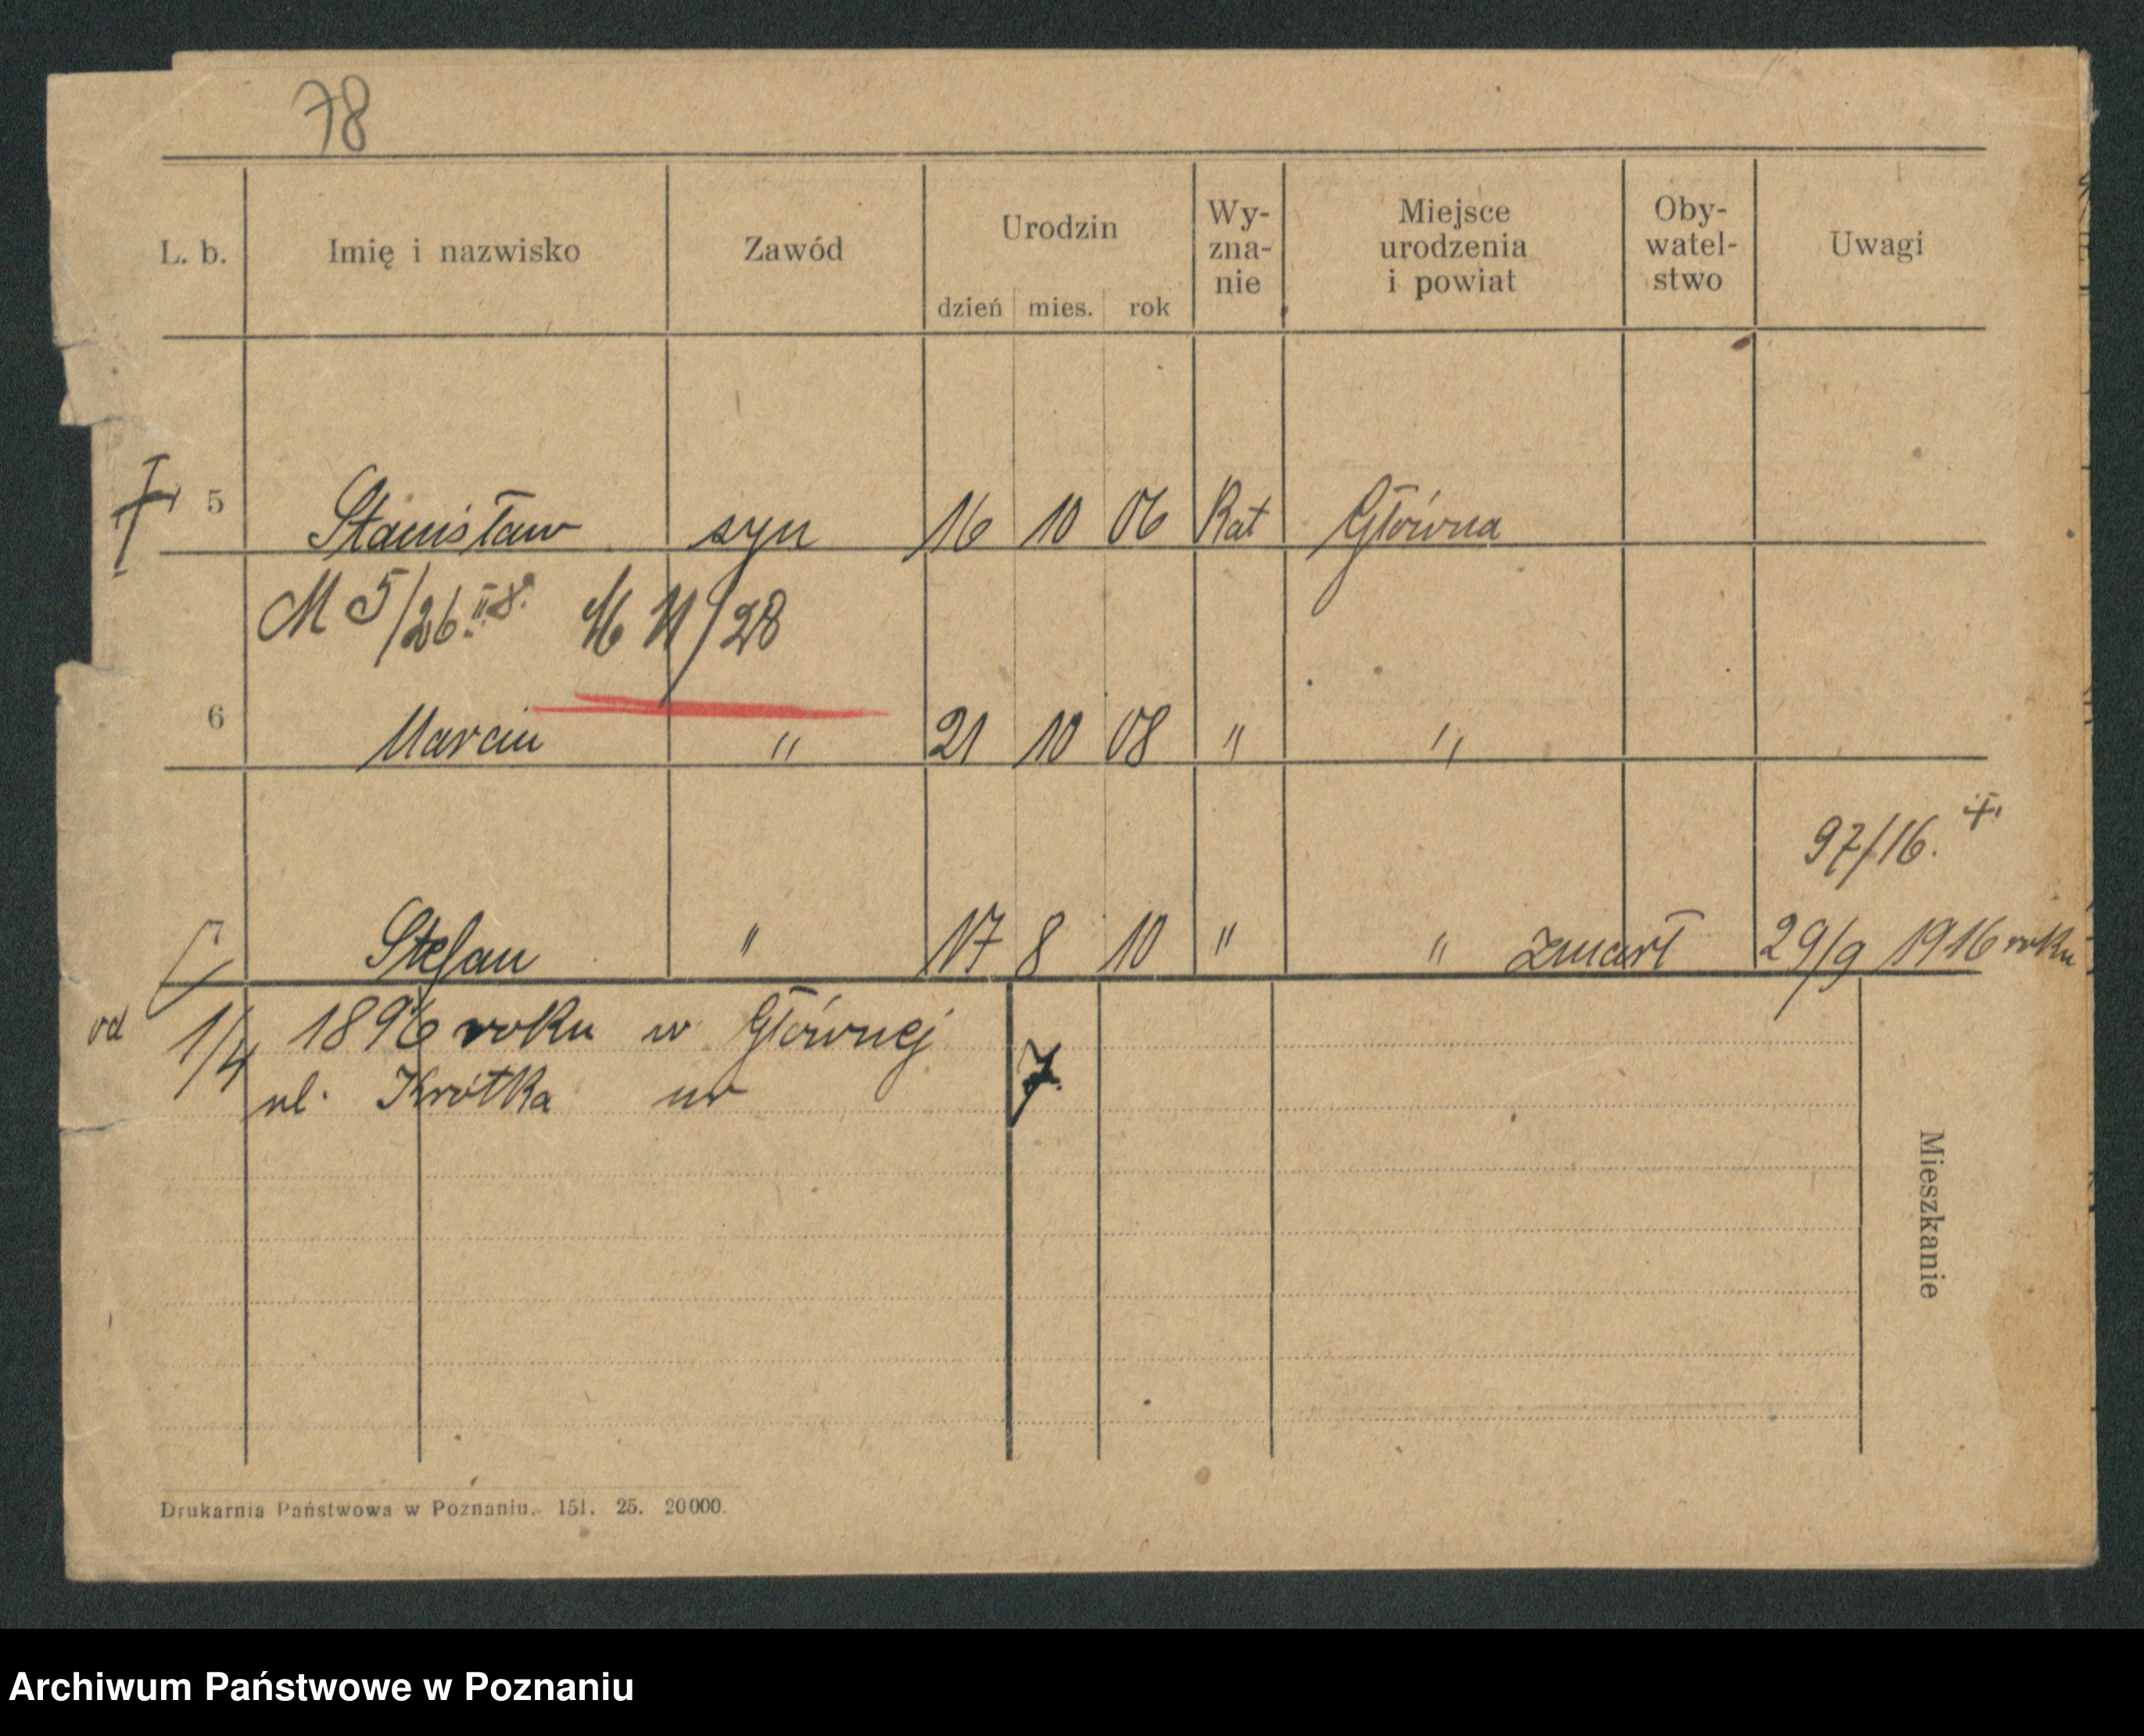 78
L. b. Imię i nazwisko Zawód Urodzin dzień mies. rok Wy- zna- nie Miejsce urodzenia i powiat Oby- watel- stwo Uwagi
5 Stanisław syn 16 10 06 Kat Główna
M 5/26. M 11/28
6 Marcin " 21 10 08 " "
97/16. +
Stefan " 17 8 10 " " zmarł 29/9 1916 roku
od 1/4 1896 roku w Głównej
ul. Krótka nr 7.
Mieszkanie
Drukarnia Państwowa w Poznaniu. 151. 25. 20000.
Archiwum Państwowe w Poznaniu